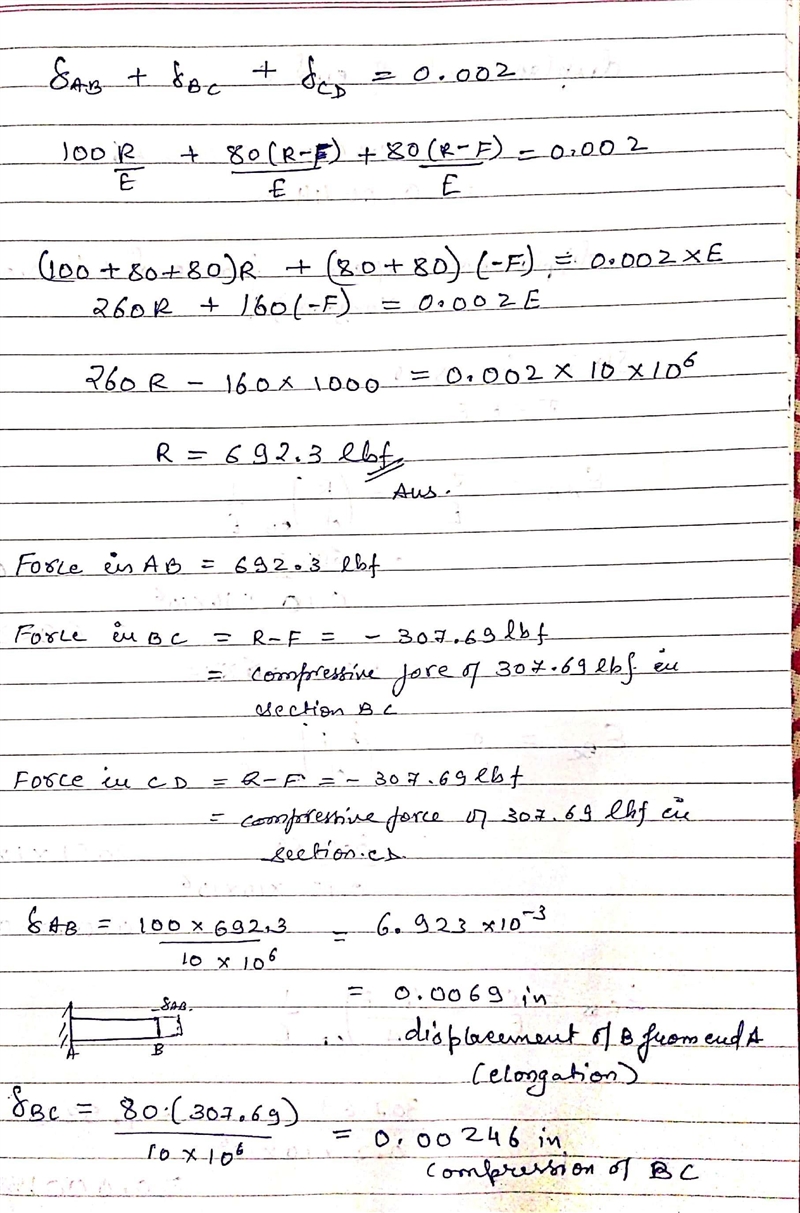 δAB + δBC + δCD = 0.002
100R/E + 80(R-F)/E + 80(R-F)/E = 0.002
(100+80+80)R + (80+80)(-F) = 0.002×E
260R + 160(-F) = 0.002E
260R - 160×1000 = 0.002 × 10 × 10⁶
R = 692.3 lbf
Ans.
Force in AB = 692.3 lbf
Force in BC = R-F = - 307.69 lbf
= compressive fore of 307.69 lbf in
section BC
Force in CD = R-F = - 307.69 lbf
= compressive force of 307.69 lbf in
section.CD.
δAB = 100 × 692.3 / 10 × 10⁶ = 6.923 × 10⁻³
= 0.0069 in
δAB.
A B
∴ displacement of B from end A
(elongation)
δBC = 80.(307.69) / 10 × 10⁶ = 0.00246 in
compression of BC